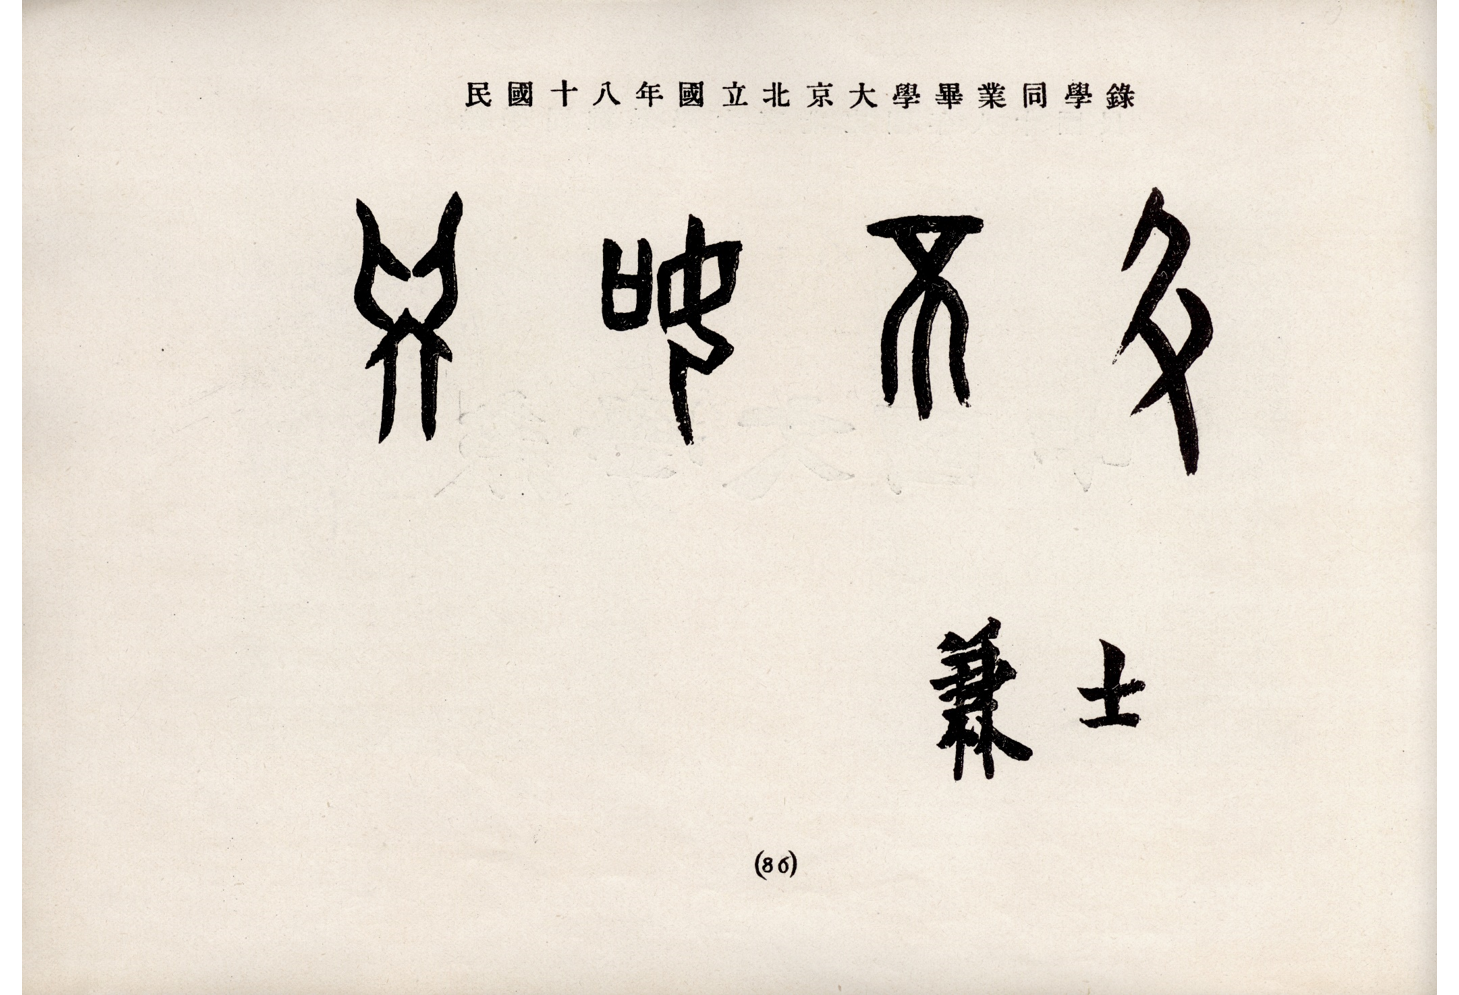 民國十八年國立北京大學畢業同學錄
學如不及
兼士
(86)